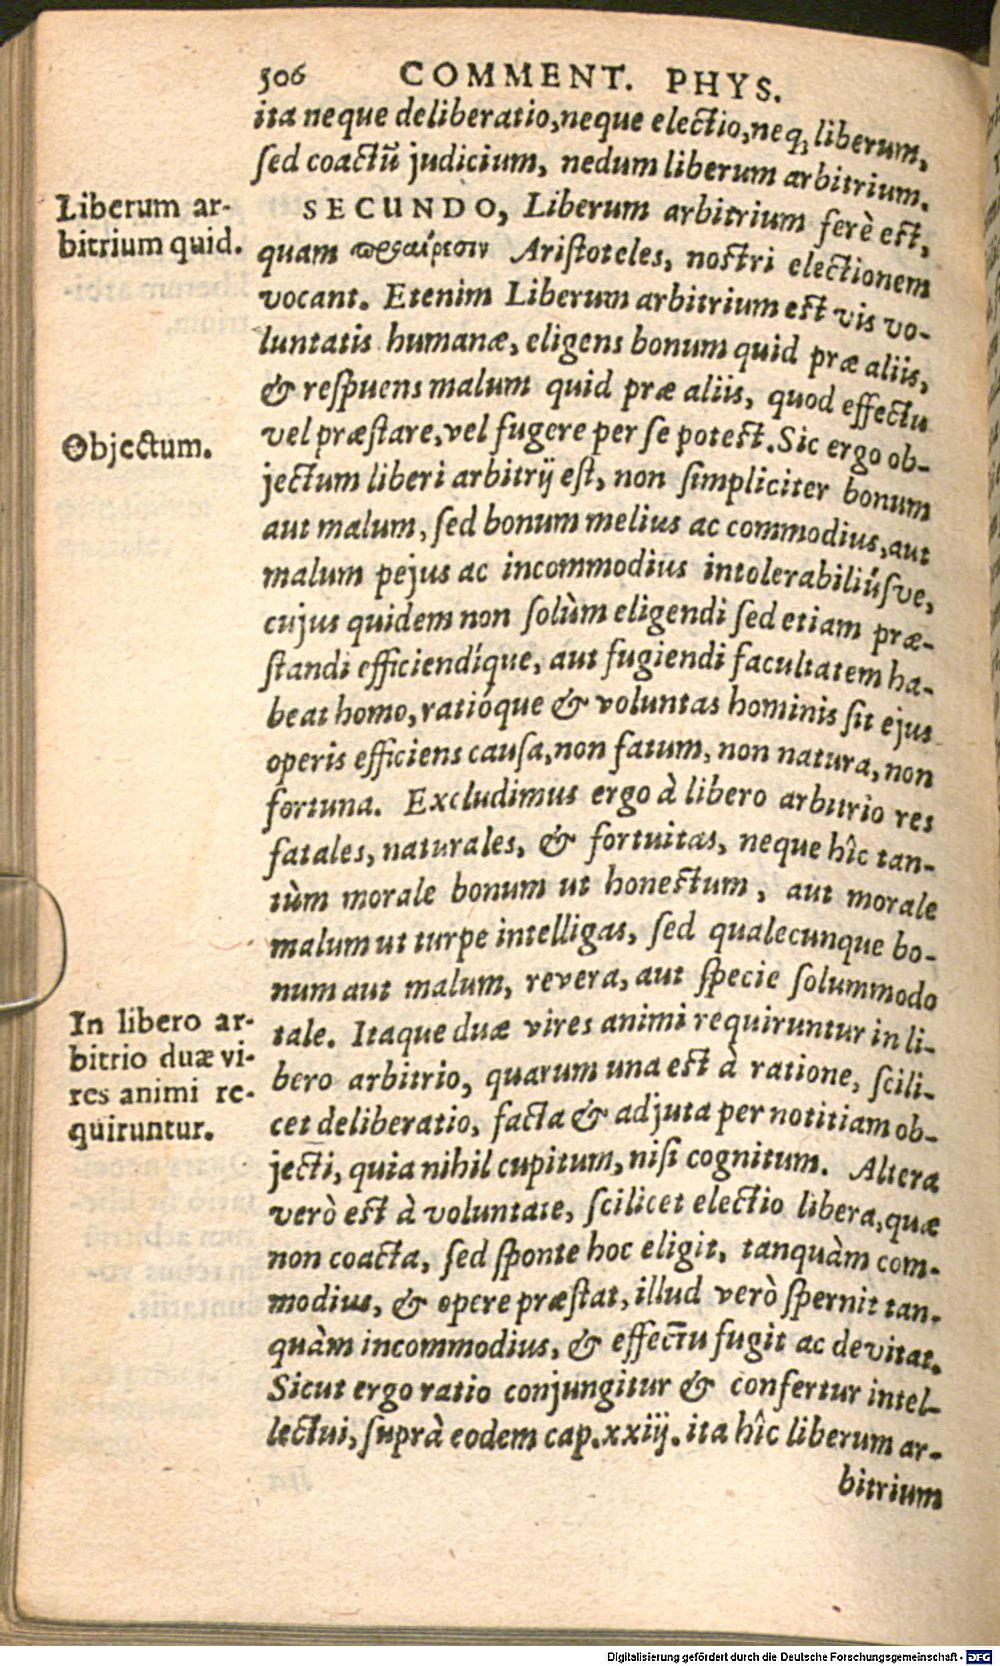 506 COMMENT. PHYS.
ita neque deliberatio, neque electio, neq, liberum,
sed coactũ judicium, nedum liberum arbitrium.
Liberum ar-
bitrium quid.
SECUNDO, Liberum arbitrium ferè est,
quam προαίρεσιν Aristoteles, nostri electionem
vocant. Etenim Liberum arbitrium est vis vo-
luntatis humanæ, eligens bonum quid præ aliis,
& respuens malum quid præ aliis, quod effectu
vel præstare, vel fugere per se potest. Sic ergo ob-
Objectum.
jectum liberi arbitrij est, non simpliciter bonum
aut malum, sed bonum melius ac commodius, aut
malum pejus ac incommodius intolerabiliúsve,
cujus quidem non solùm eligendi sed etiam præ-
standi efficiendíque, aut fugiendi facultatem ha-
beat homo, ratióque & voluntas hominis sit ejus
operis efficiens causa, non fatum, non natura, non
fortuna. Excludimus ergo à libero arbitrio res
fatales, naturales, & fortuitas, neque hîc tan-
tùm morale bonum ut honestum, aut morale
malum ut turpe intelligas, sed qualecunque bo-
num aut malum, revera, aut specie solummodo
In libero ar-
bitrio duæ vi-
res animi re-
quiruntur.
tale. Itaque duæ vires animi requiruntur in li-
bero arbitrio, quarum una est à ratione, scili-
cet deliberatio, facta & adjuta per notitiam ob-
jecti, quia nihil cupitum, nisi cognitum. Altera
verò est à voluntate, scilicet electio libera, quæ
non coacta, sed sponte hoc eligit, tanquàm com-
modius, & opere præstat, illud verò spernit tan-
quàm incommodius, & effectu fugit ac devitat.
Sicut ergo ratio conjungitur & confertur intel-
lectui, suprà eodem cap. xxiij. ita hîc liberum ar-
bitrium
Digitalisierung gefördert durch die Deutsche Forschungsgemeinschaft - DFG